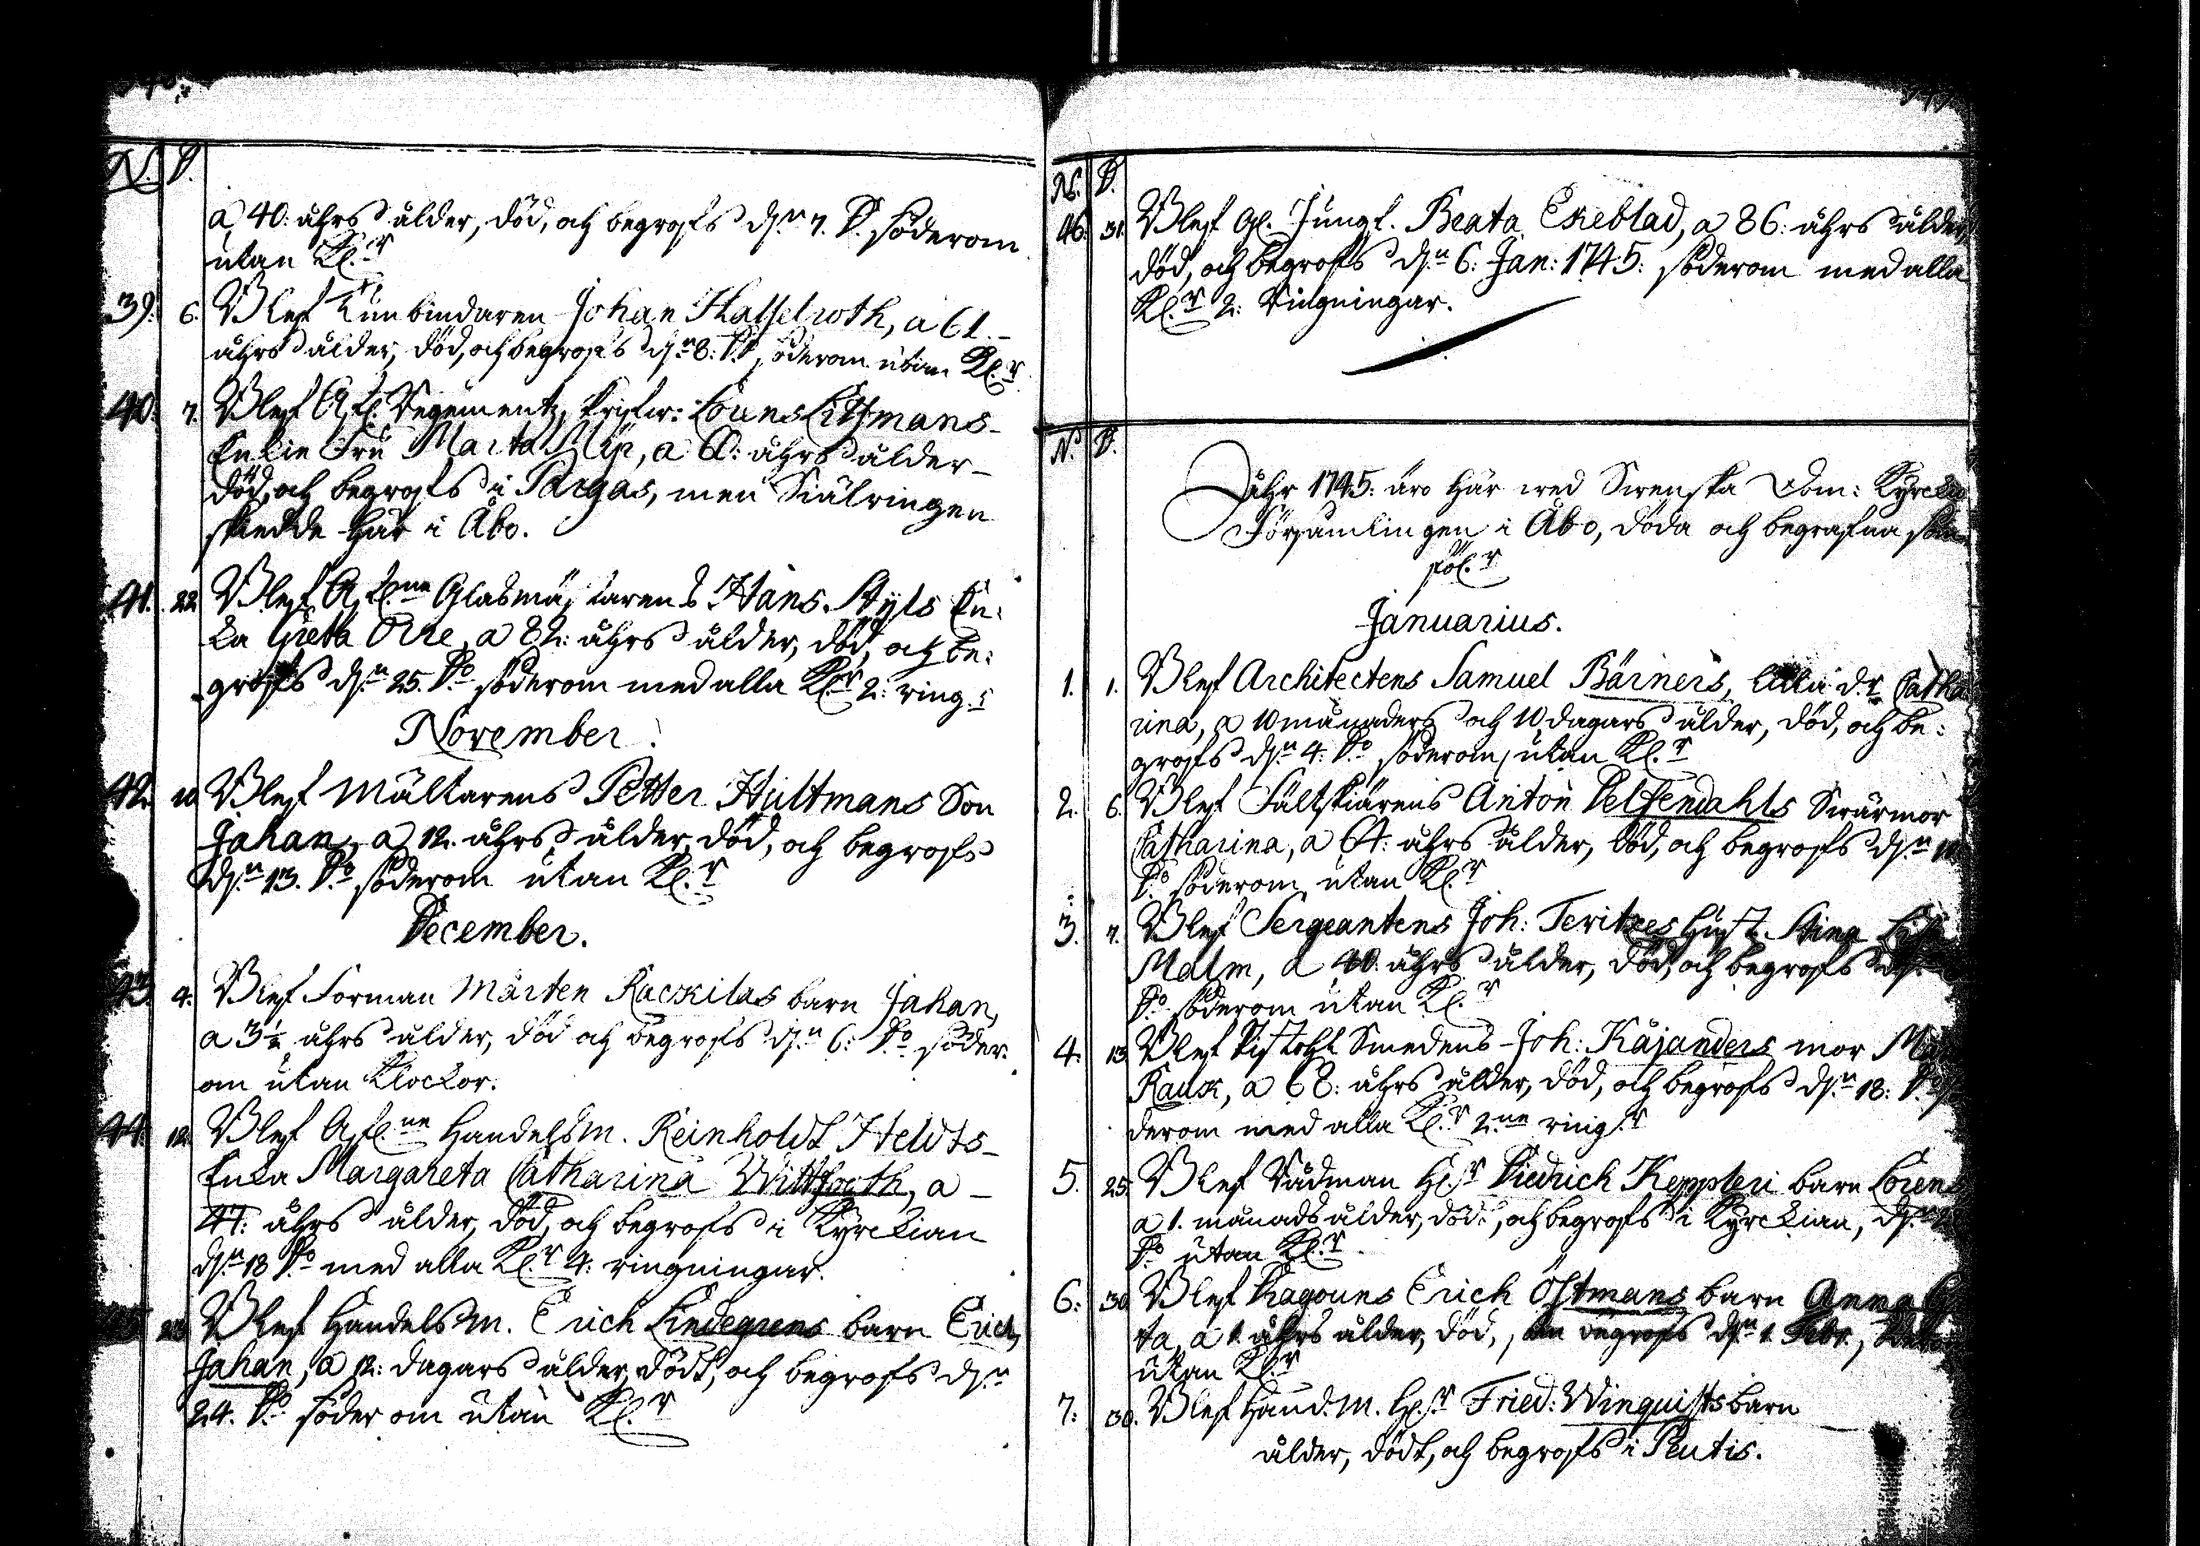 N. D.
a 40: åhrs ålder, död, och begrofs d.n 7. D. söderom
utan Kl.r
39. 6. Blef Tunbindaren Johan Hasselroth, a 61
åhrs ålder, död, och begrofs d.n 8: D.o söderom utan Kl.r
40. 7. Blef Afl. Regiments
Enkia Fru Marta, a åhrs ålder
död, och begrofs i Pargas, men Siälringen
skiedde här i Åbo.
41. 22. Blef Afl.ne Glasmästarens Hans En:
ka Greta Orre, a 82: åhrs ålder, död, och be:
grofs d.n 25. D.o söderom med alla Kl.r 2: ring.r
November.
42. 10. Blef Mältarens Petter Hultmans Son
Johan, a 12. åhrs ålder, död, och begrofs
d.n 13. D.o söderom utan Kl.r
December.
43. 4. Blef Forman Mårten Rackilas barn Johan,
a 3½ åhrs ålder, död och begrofs d.n 6: D.o söder:
om utan Klockor.
44. 12. Blef Afl.ne Handelsm. Reinholdt Heldts
Enka Margareta Catharina Wittfooth, a
47: åhrs ålder, död, och begrofs i Kyrckian
d.n 18 D.o med alla Kl.r 4: ringningar.
Blef Handelsm. Erich Lindegrens barn Erich
Johan, a 12: dagars ålder, dödt, och begrofs d.n
24. D.o söder om utan Kl.r
N. D.
46. 31. Blef Gl. Jungf. Beata Ekeblad, a 86: åhrs ålder,
död, och begrofs d.n 6: Jan: 1745: söderom med alla
Kl.r 2: Ringningar.
N. D.
Åhr 1745: äro här wed Swenska Dom: Kyrckio
Församlingen i Åbo, döda och begrafna som
föl.r
Januarius.
1. 1. Blef Architectens Samuel Bärners, lilla d.r Catha
rina, a 10 månaders och 10 dagars ålder, död, och be:
grofs d.n 4: D.o söderom, utan Kl.r
2. 6. Blef Fältskiärens Anton Swärmor
Catharina, a 64: åhrs ålder, död, och begrofs d.n
D.o söderom utan Kl.r
3. 7. Blef Sergeantens Joh: hust. Stina
Malm, a 40. åhrs ålder, död, och begrofs
D.o söderom utan Kl.r
4. 13. Blef Pistohl Smedens Joh: Kajanders mor
Rauk, a 68: åhrs ålder, död, och begrofs d.n 18: D.o sö
derom med alla Kl.r 2.ne ring.r
5. 25. Blef Rådman H.r Diedrich Keppleri barn Lorens
a 1. månads ålder, död, och begrofs i Kyrckian, d.n
D.o utan Kl.r
6: 30. Blef Dragouns Erich Östmans barn Anna
ta, a 1. åhrs ålder, död, begrofs d.n 1. Febr.,
utan Kl.r
7: 30. Blef Hand.m. H.r Fried: Winquists barn
ålder, dödt, och begrofs i Rentis.